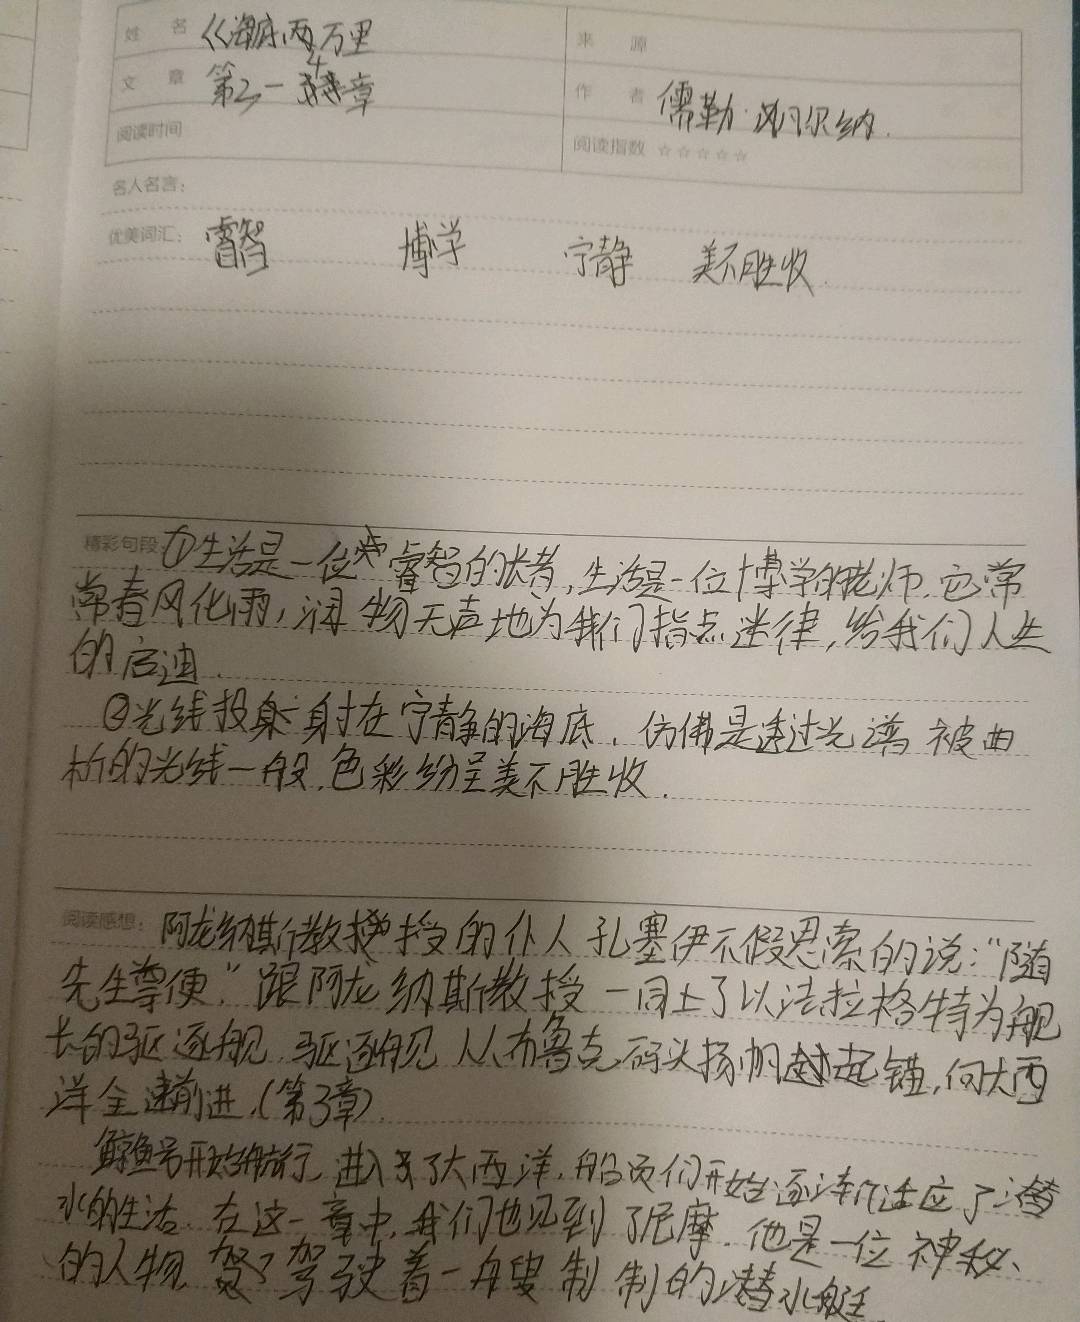 姓 名 《海底两万里
来 源
文 章 第3一4章
作 者 儒勒·凡尔纳.
阅读时间
阅读指数 ☆☆☆☆☆
名人名言：
优美词汇： 睿智 博学 宁静 美不胜收.
精彩句段：①生活是一位睿智的长者,生活是一位博学的老师.它常
常春风化雨,润物无声地为我们指点迷律,给我们人生
的启迪.
②光线投射在宁静的海底.仿佛是透过光谱被曲
析的光线一般.色彩纷呈美不胜收.
阅读感想：阿龙纳斯教授的仆人孔塞伊不假思索的说:“随
先生尊便.”跟阿龙纳斯教授一同上了以法拉格特为舰
长的驱逐舰.驱逐舰从布鲁克码头扬帆起锚,向大西
洋全速前进.(第3章).
鲸鱼号开始航行,进入了大西洋.船员们开始逐渐适应了潜
水的生活.在这一章中,我们也见到了尼摩.他是一位神秘、
的人物.驾驶着一艘制制的潜水艇